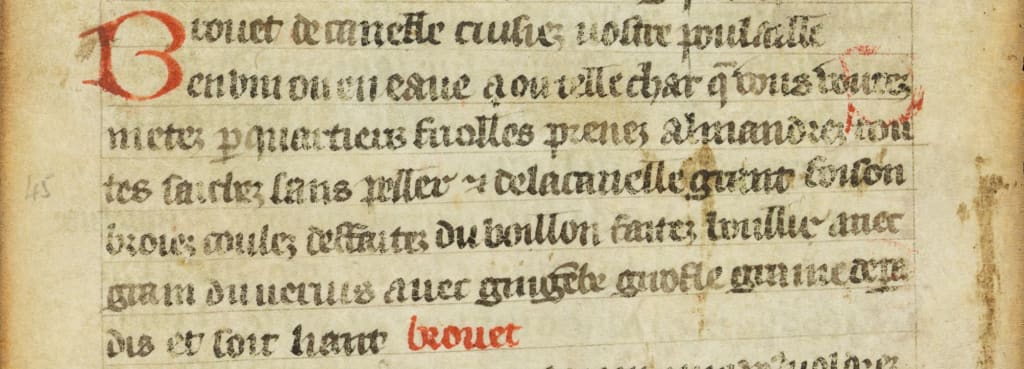 Brouet de canelle cuisiez vostre poulaille
en vin ou en eaue a ou telle char q̃ vous voulez
metez ꝑ quartiers friolles prenez almandrez tou
tes saichez sans peller ⁊ de la canelle grant foison
broiez coulez deffaitez du boillon faitez boullir avec
grain du verius avec gingẽbr̃ girofle graine de para
dis et soit liant brouet
45